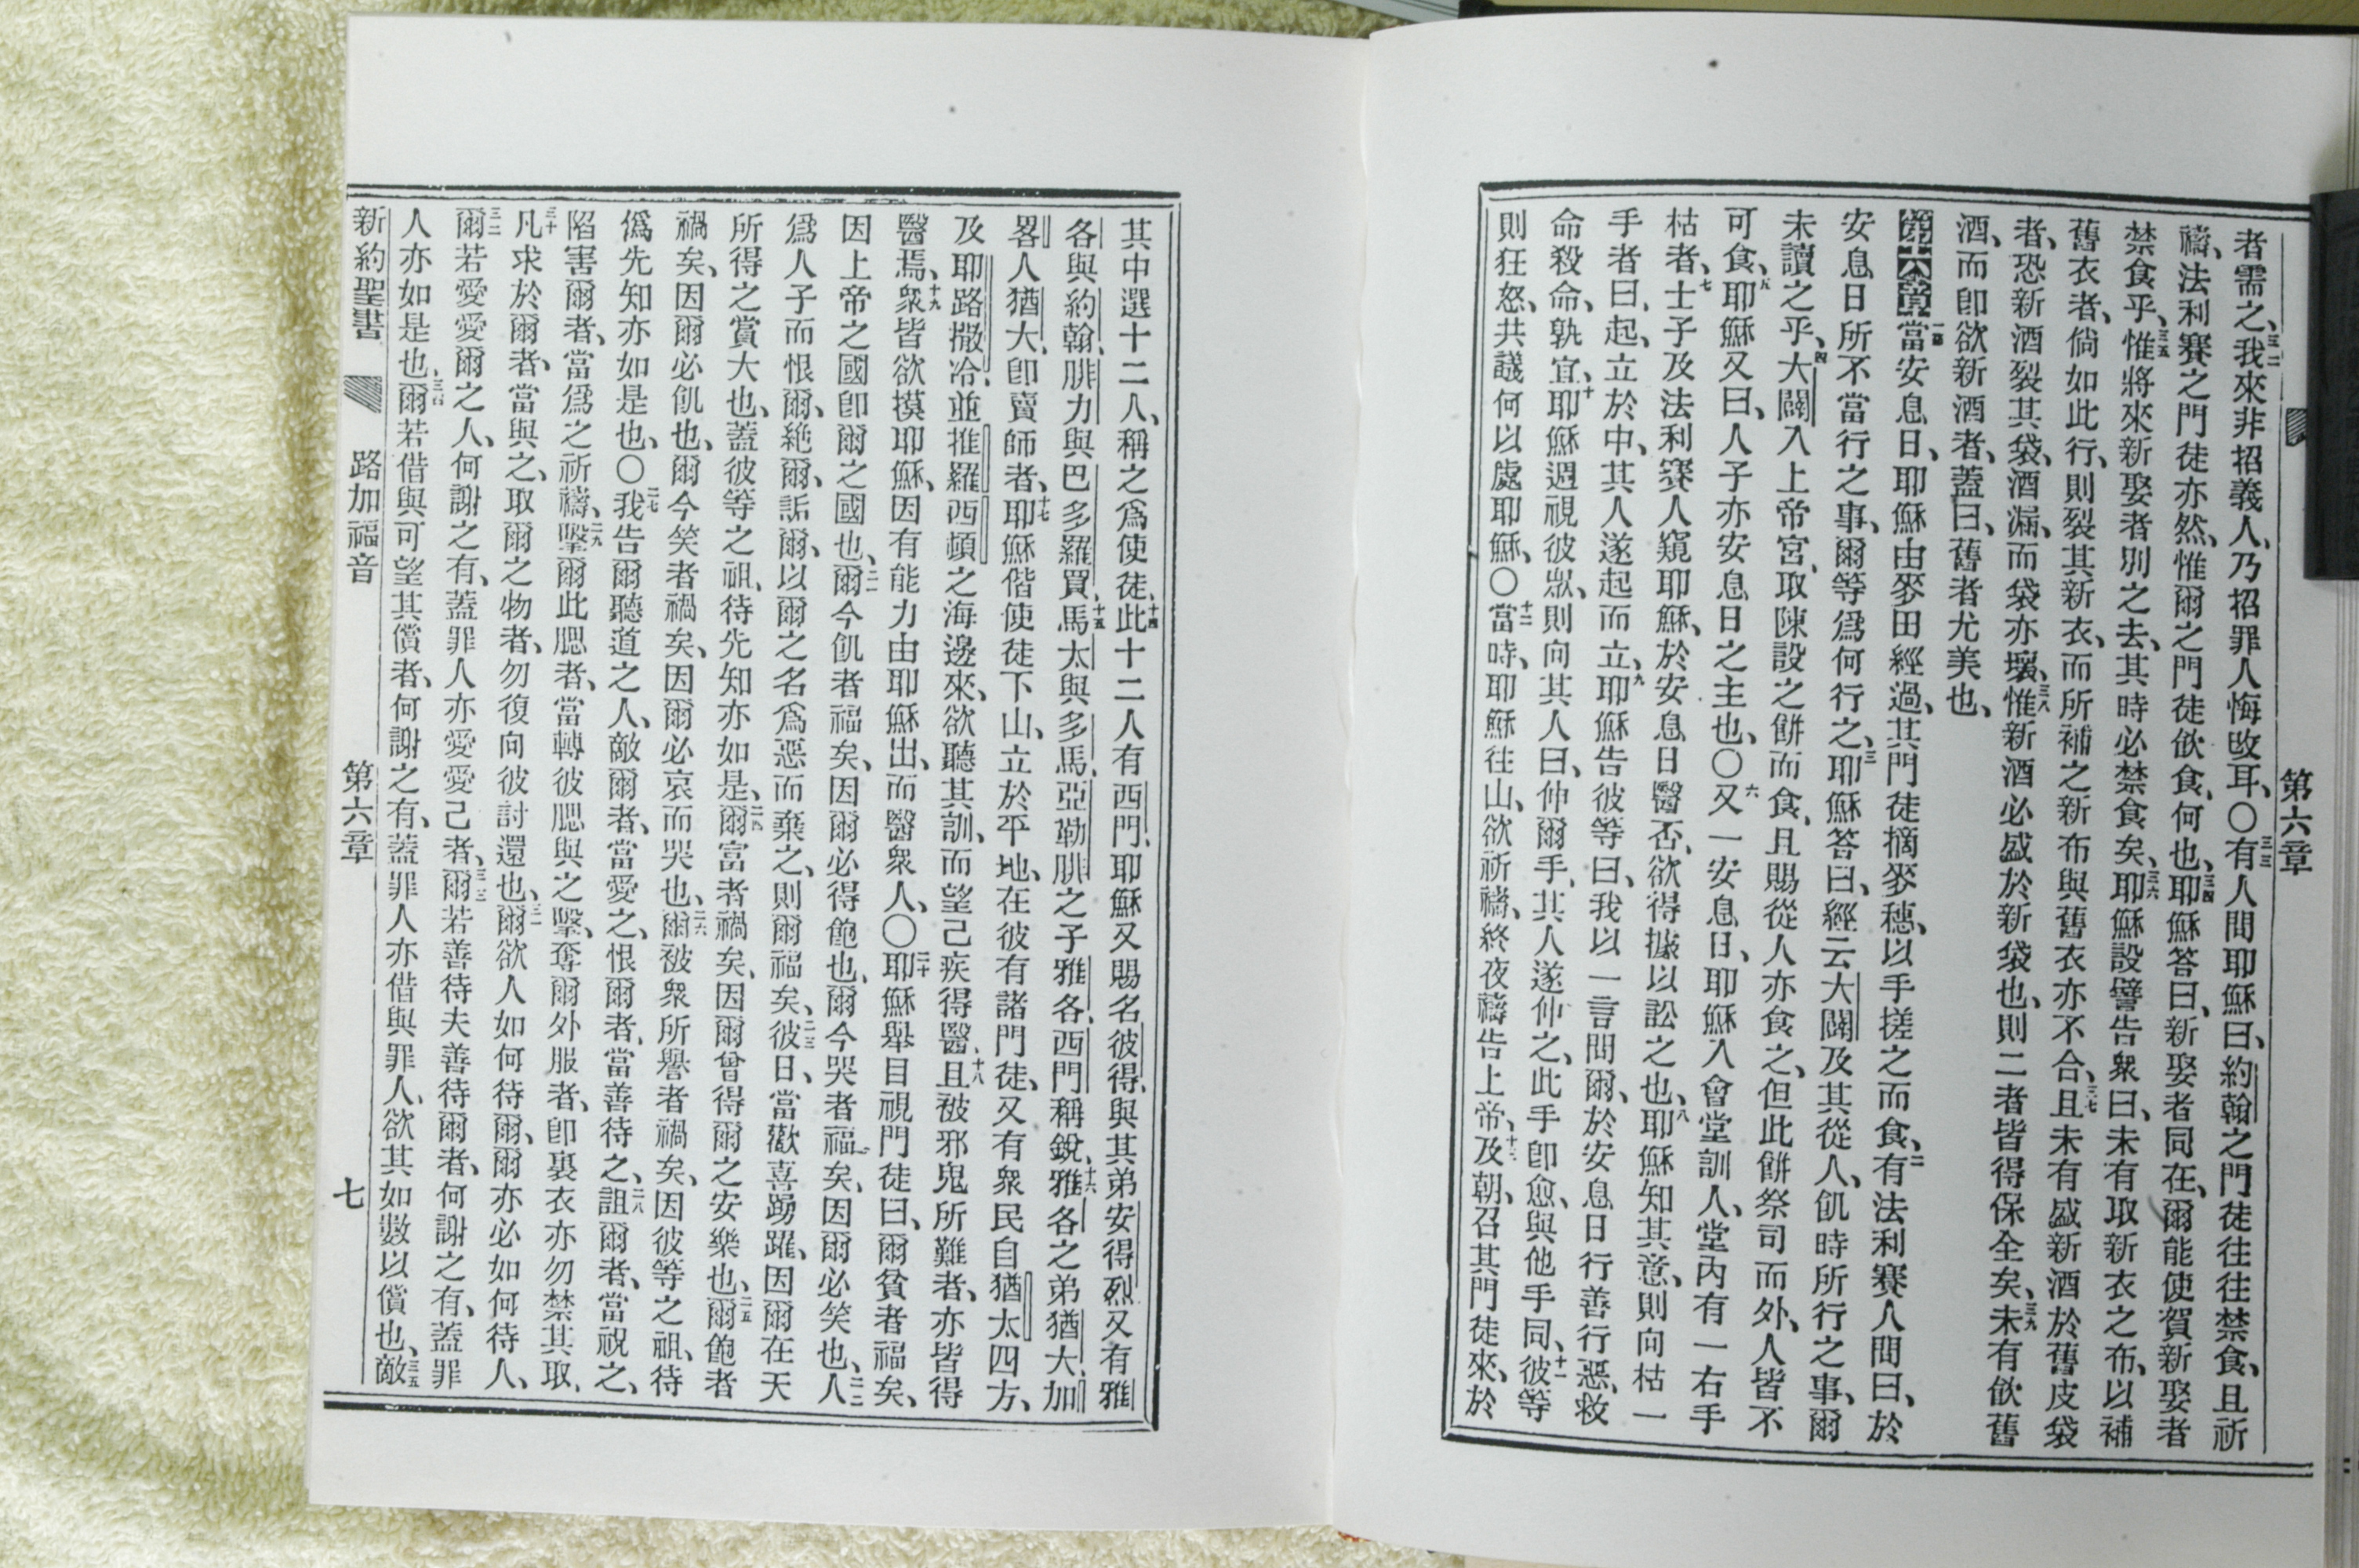 第六章
者需之、三二我來非招義人、乃招罪人悔攺耳、〇三三有人間耶穌曰、約翰之門徒往往禁食、且祈
禱、法利賽之門徒亦然、惟爾之門徒飲食、何也、三四耶穌答曰、新娶者同在、爾能使賀新娶者
禁食乎、三五惟將來新娶者別之去、其時必禁食矣、三六耶穌設譬告衆曰、未有取新衣之布、以補
舊衣者、倘如此行、則裂其新衣、而所補之新布與舊衣亦不合、三七且未有盛新酒於舊皮袋
者、恐新酒裂其袋、酒漏、而袋亦壞、三八惟新酒必盛於新袋也、則二者皆得保全矣、三九未有飲舊
酒、而卽欲新酒者、蓋曰、舊者尤美也、
第六章 一當安息日、耶穌由麥田經過、其門徒摘麥穗、以手搓之而食、二有法利賽人間曰、於
安息日所不當行之事、爾等爲何行之、三耶穌答曰、經云大闢及其從人、飢時所行之事、爾
未讀之乎、四大闢入上帝宮、取陳設之餅而食、且賜從人亦食之、但此餅祭司而外、人皆不
可食、五耶穌又曰、人子亦安息日之主也、〇六又一安息日、耶穌入會堂訓人、堂內有一右手
枯者、七士子及法利賽人窺耶穌、於安息日醫否、欲得據以訟之也、八耶穌知其意、則向枯一
手者曰、起、立於中、其人遂起而立、九耶穌告彼等曰、我以一言問爾、於安息日行善行惡、救
命殺命、孰宜、十耶穌週視彼衆、則向其人曰、伸爾手、其人遂伸之、此手卽愈、與他手同、十一彼等
則狂怒、共議何以處耶穌、〇十二當時、耶穌往山、欲祈禱、終夜禱告上帝、十三及朝、召其門徒來、於
其中選十二人、稱之爲使徒、十四此十二人有西門、耶穌又賜名彼得、與其弟安得烈又有雅
各與約翰、腓力與巴多羅買、十五馬太與多馬、亞勒腓之子雅各、西門稱銳、十六雅各之弟猶大、加
畧人猶大、卽賣師者、十七耶穌偕使徒下山、立於平地、在彼有諸門徒、又有衆民自猶太四方、
及耶路撒冷、並推羅西頓之海邊來、欲聽其訓、而望己疾得醫、十八且被邪鬼所難者、亦皆得
醫焉、十九衆皆欲摸耶穌、因有能力由耶穌出、而醫衆人、〇二十耶穌舉目視門徒曰、爾貧者福矣、
因上帝之國卽爾之國也、二一爾今飢者福矣、因爾必得飽也、爾今哭者福矣、因爾必笑也、二二人
爲人子而恨爾、絕爾、詬爾、以爾之名爲惡而棄之、則爾福矣、二三彼日、當歡喜踴躍、因爾在天
所得之賞大也、蓋彼等之祖、待先知亦如是、二四爾富者禍矣、因爾曾得爾之安樂也、二五爾飽者
禍矣、因爾必飢也、爾今笑者禍矣、因爾必哀而哭也、二六爾被衆所譽者禍矣、因彼等之祖、待
僞先知亦如是也、〇二七我告爾聽道之人、敵爾者、當愛之、恨爾者、當善待之、二八詛爾者、當祝之、
陷害爾者、當爲之祈禱、二九擊爾此腮者、當轉彼腮與之擊、奪爾外服者、卽裏衣亦勿禁其取、
三十凡求於爾者、當與之、取爾之物者、勿復向彼討還也、三一爾欲人如何待爾、爾亦必如何待人、
三二爾若愛愛爾之人、何謝之有、蓋罪人亦愛愛己者、三三爾若善待夫善待爾者、何謝之有、蓋罪
人亦如是也、三四爾若借與可望其償者、何謝之有、蓋罪人亦借與罪人、欲其如數以償也、三五敵
新約聖書 路加福音 第六章 七